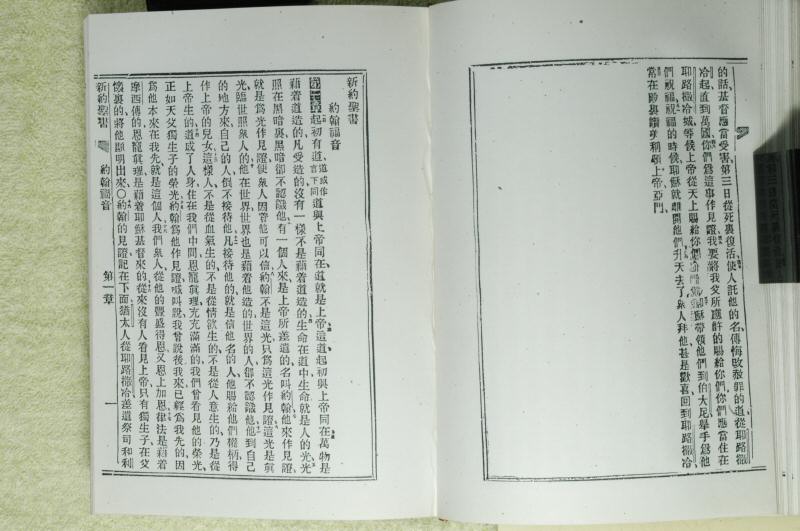 的話基督應當受害第三日從死裏復活使人託他的名傳悔改赦罪的道從耶路撒
冷起直到萬國你們爲這事作見證我要將我父所應許的賜給你們你們應當住在
耶路撒冷城等候上帝從天上賜給你們
耶穌帶領他們到伯大尼舉手爲他
們祝福祝福的時候耶穌就離開他們升天去了衆人拜他甚是歡喜回到耶路撒冷
常在殿裏讚美稱頌上帝亞們
新約聖書
約翰福音
第一章起初有道道或作言下同道與上帝同在道就是上帝這道起初與上帝同在萬物是
藉着道造的凡受造的沒有一樣不是藉着道造的生命在道中生命就是人的光光
照在黑暗裏黑暗卻不認識他有一個人來是上帝所差遣的名叫約翰他來作見證
就是爲光作見證使衆人因着他可以信約翰不是這光只爲這光作見證這光是眞
光臨世照衆人的他在世界世界也是藉着他造的世界的人卻不認識他他到自己
的地方來自己的人倒不接待他凡接待他的就是信他名的人他賜給他們權柄得
作上帝的兒女這樣人不是從血氣生的不是從情慾生的不是從人意生的乃是從
上帝生的道成了人身住在我們中間恩寵眞理充充滿滿的我們曾看見他的榮光
正如天父獨生子的榮光約翰爲他作見證喊叫說我曾說後我來已經爲我先的因
爲他本來在我先就是這個人我們衆人從他的豐盛得恩又恩上加恩律法是藉着
摩西傳的恩寵眞理是藉着耶穌基督來的從來沒有人看見上帝只有獨生子在父
懷裏的將他顯明出來〇約翰的見證記在下面猶太人從耶路撒冷差遣祭司和利
新約聖書 約翰福音 第一章 一